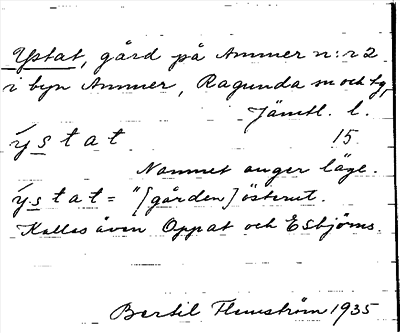 Ystat, gård på Ammer n:r 2
i byn Ammer, Ragunda sn och tg,
Jämtl. l.
ýstat 15.
Namnet anger läge.
ýstat = "[gården] österut.
Kallas även Oppat och Esbjöms.
Bertil Flemström 1935